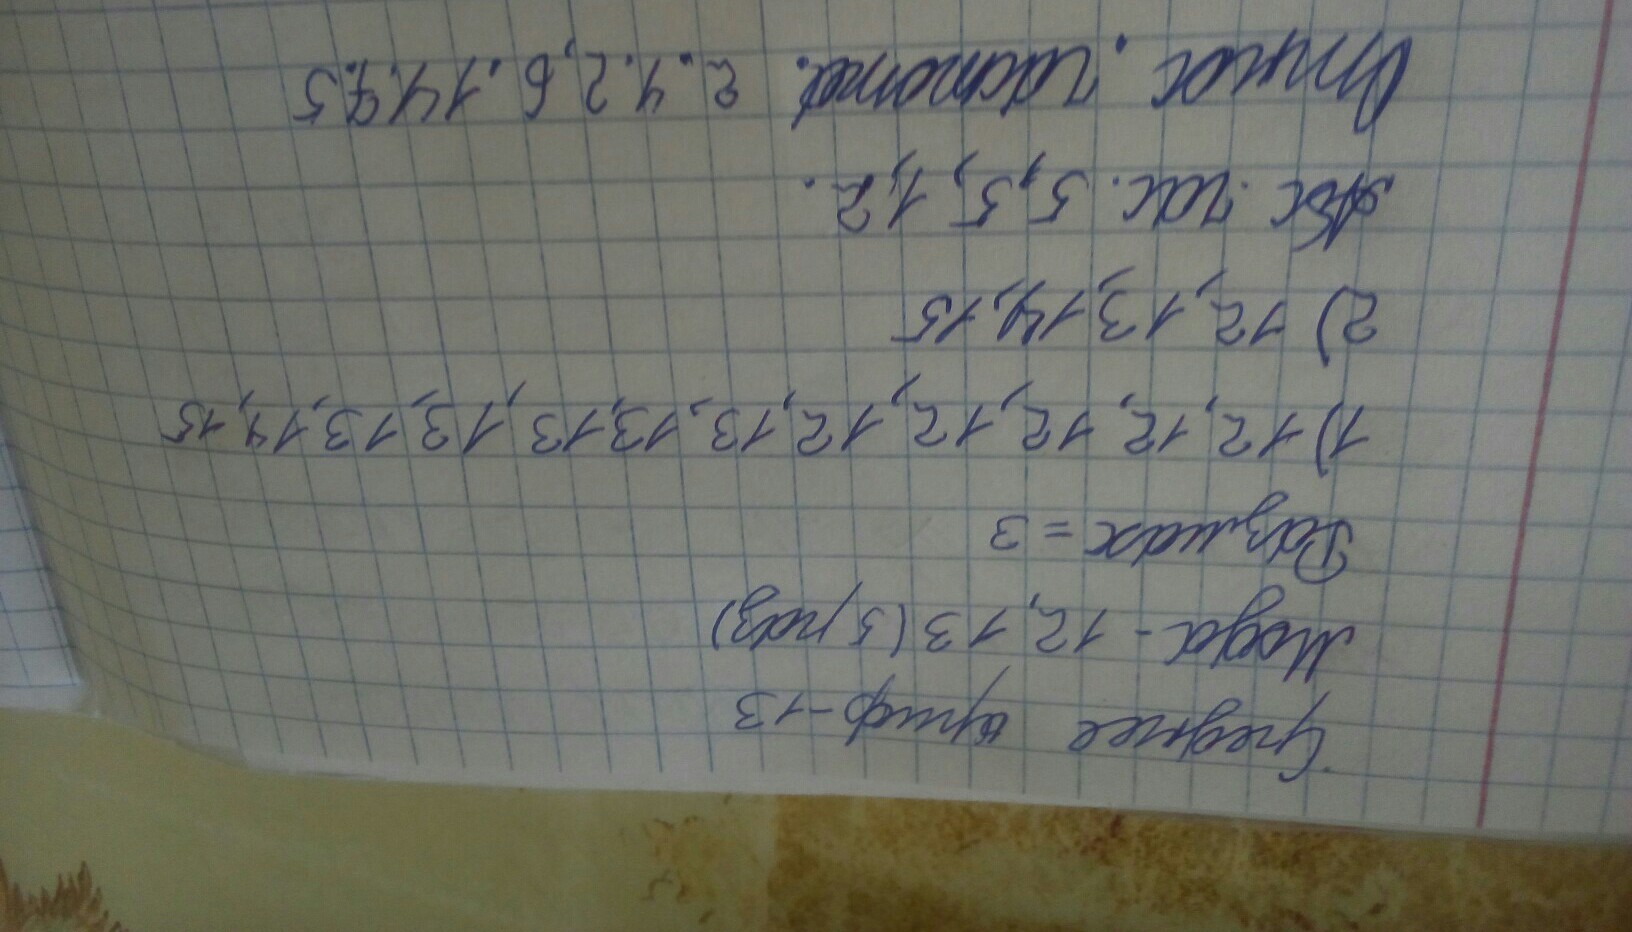 Среднее ариф-13
Мода - 12,13 (5 раз)
Размах = 3
1) 12, 12, 12, 12, 12, 13, 13, 13, 13, 13, 14, 15
2) 12, 13, 14, 15
Абс час. 5, 5, 1, 2.
Относ. Частота.